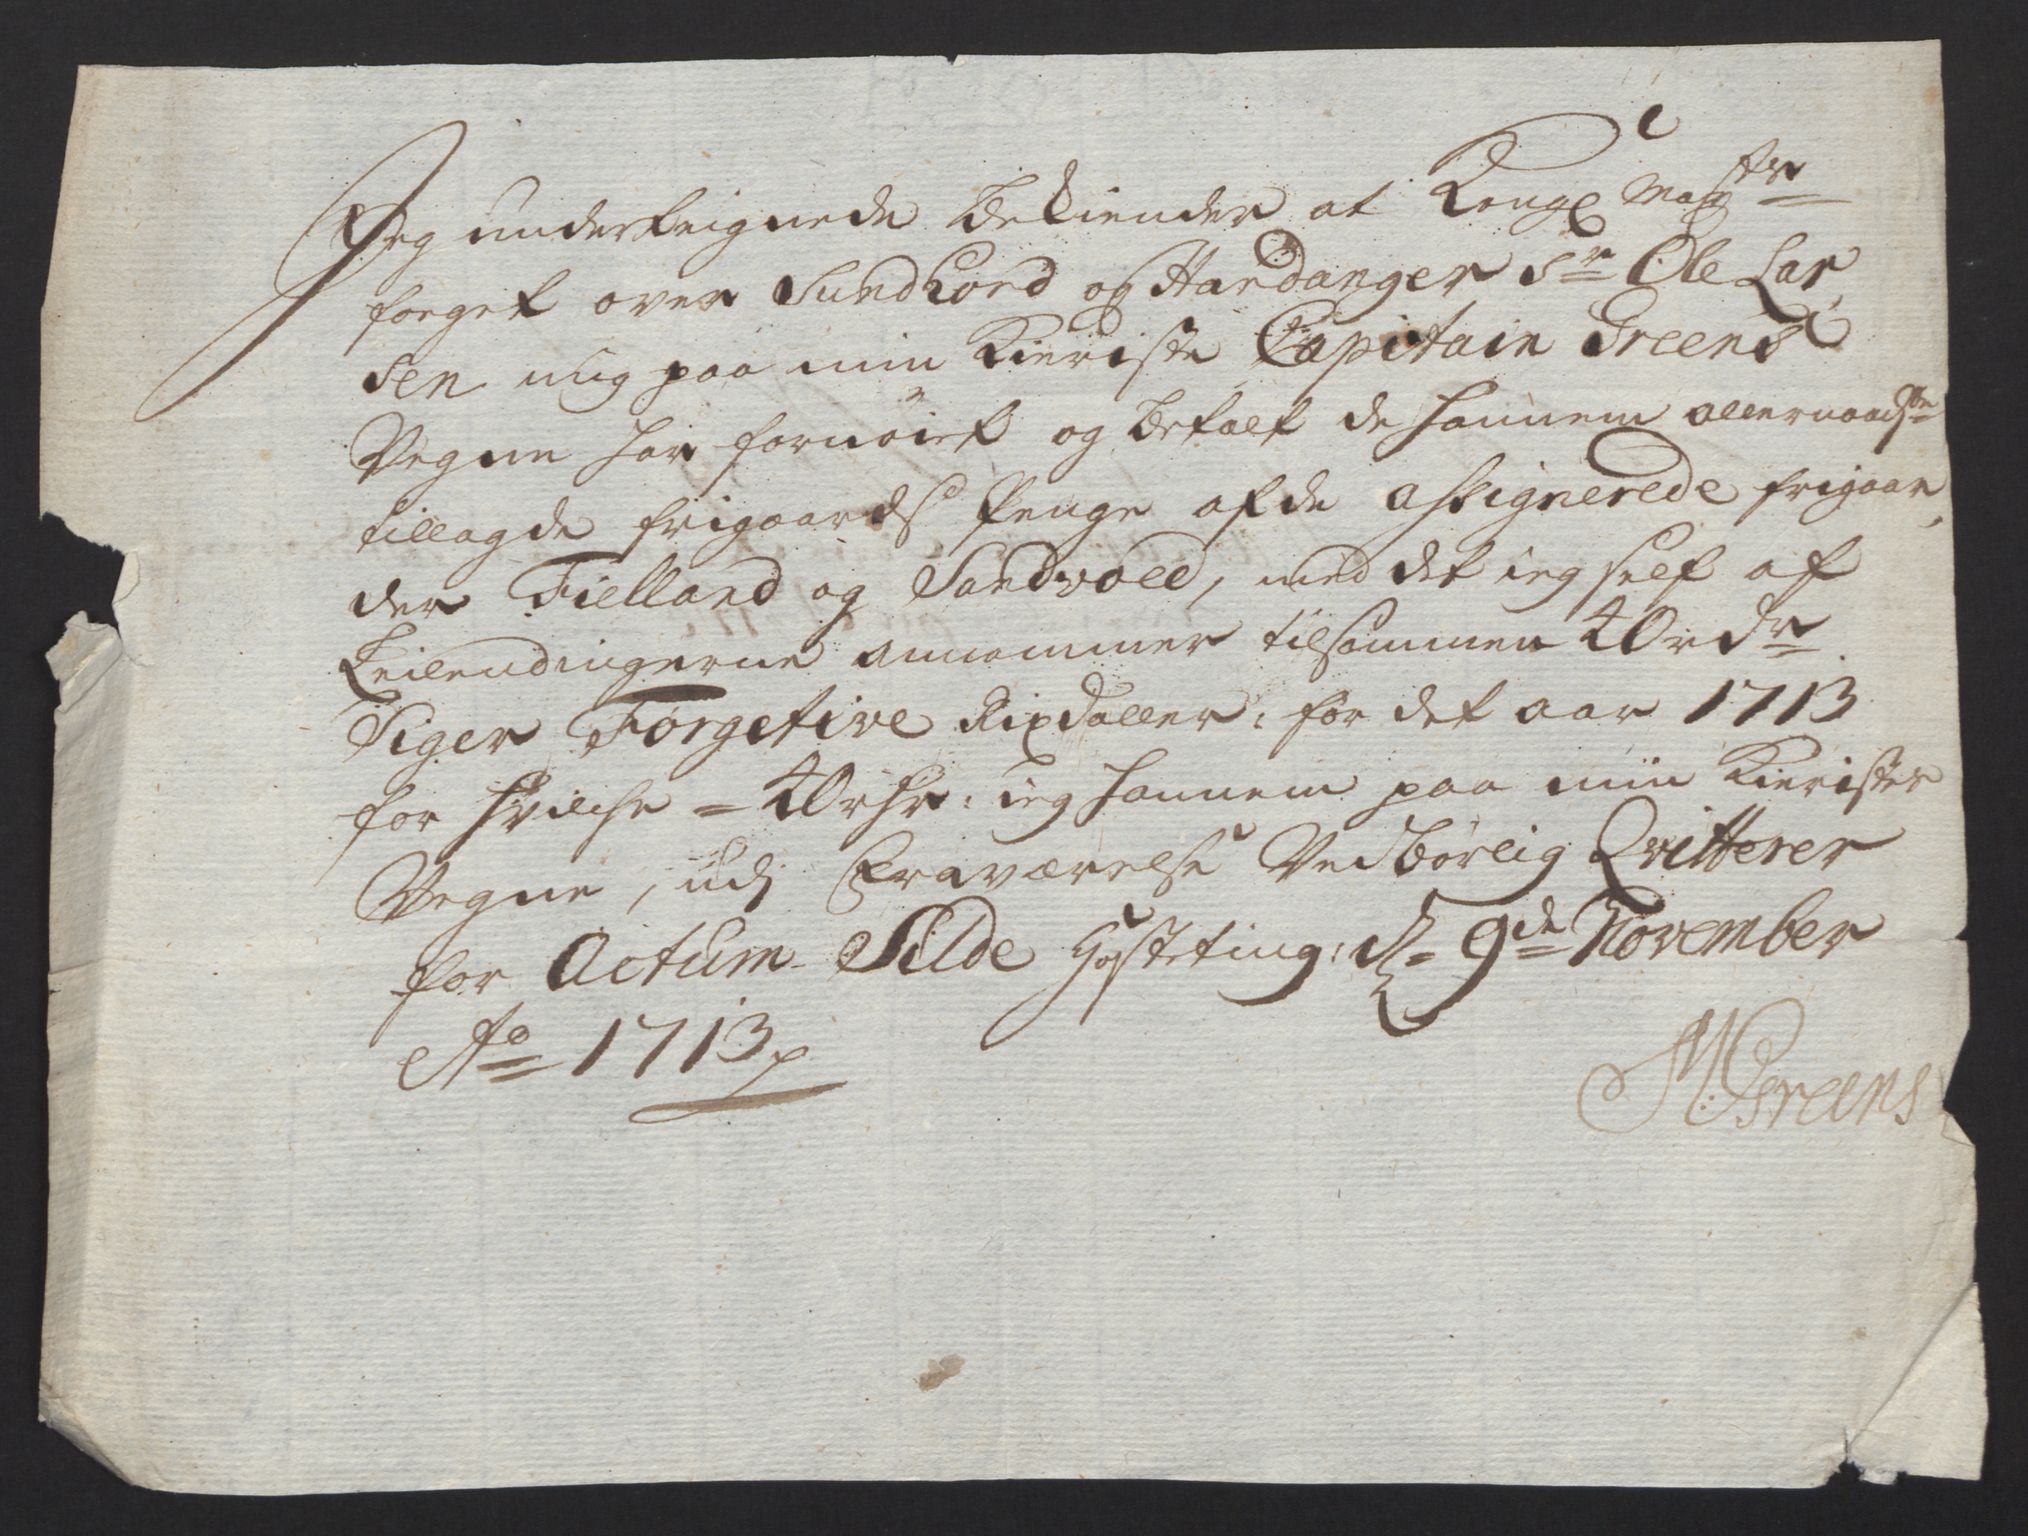 Jeg underteignede bekiender at Kongl Mayts
foeget over Sundhord og Hardanger Sr Ole Lar,
sen mig paa min Kieriste Capitain Greens
Vegne har fornøiet og betalt de hannem allernaadste
tillagde frigaards Penge af de assignerede frigaar,
der Fielland og Sandvold, med det ieg self af
Leilendingerne annammer tilsammen 40 rdr
Siger Førgetive Rixdaller, for det aar 1713
for hvilche = 40 rdr: ieg hannem paa min Kieristes
Vegne, udj Fraværelse Vedbørlig Qvitterer
for Actum Silde Høsteting, d. 9de November
Ao 1713
M: Greens